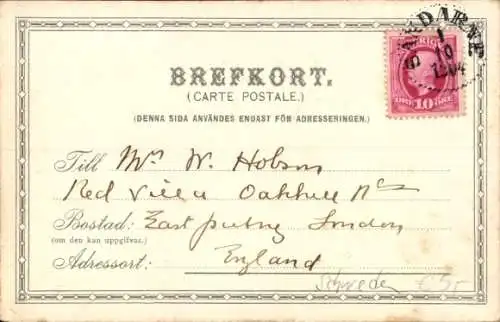 SANDARNE
1
10
1904
SVERIGE
ÖRE 10 ÖRE
BREFKORT.
(CARTE POSTALE.)
(DENNA SIDA ANVÄNDES ENDAST FÖR ADRESSERINGEN.)
Till Mrs W. Hobson
Red Villa Oakhill Rd
Bostad: East putney London
(om den kan uppgifvas.)
Adressort: England
Schweden